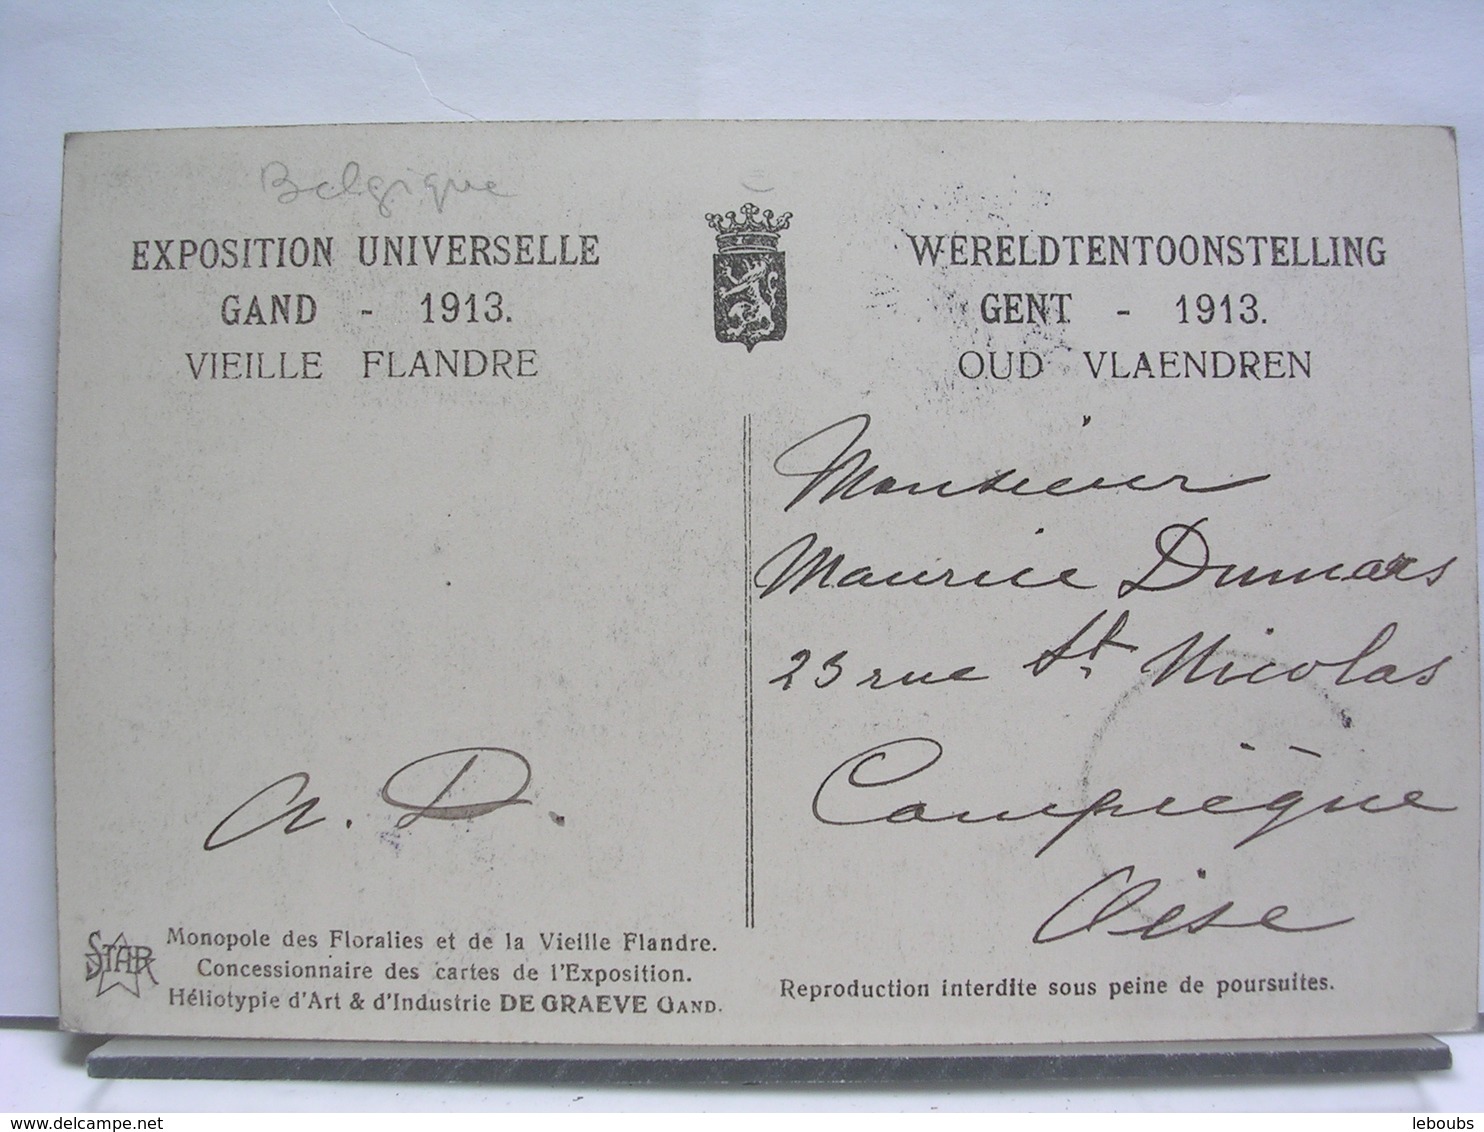 Belgique
EXPOSITION UNIVERSELLE
GAND - 1913.
VIEILLE FLANDRE
WERELDTENTOONSTELLING
GENT - 1913.
OUD VLAENDREN
Monsieur
Maurice Dumars
23 rue St. Nicolas
Compiègne
Oise
A. D.
STAR
Monopole des Floralies et de la Vieille Flandre.
Concessionnaire des cartes de l'Exposition.
Héliotypie d'Art & d'Industrie DE GRAEVE GAND.
Reproduction interdite sous peine de poursuites.
www.delcampe.net
leboubs